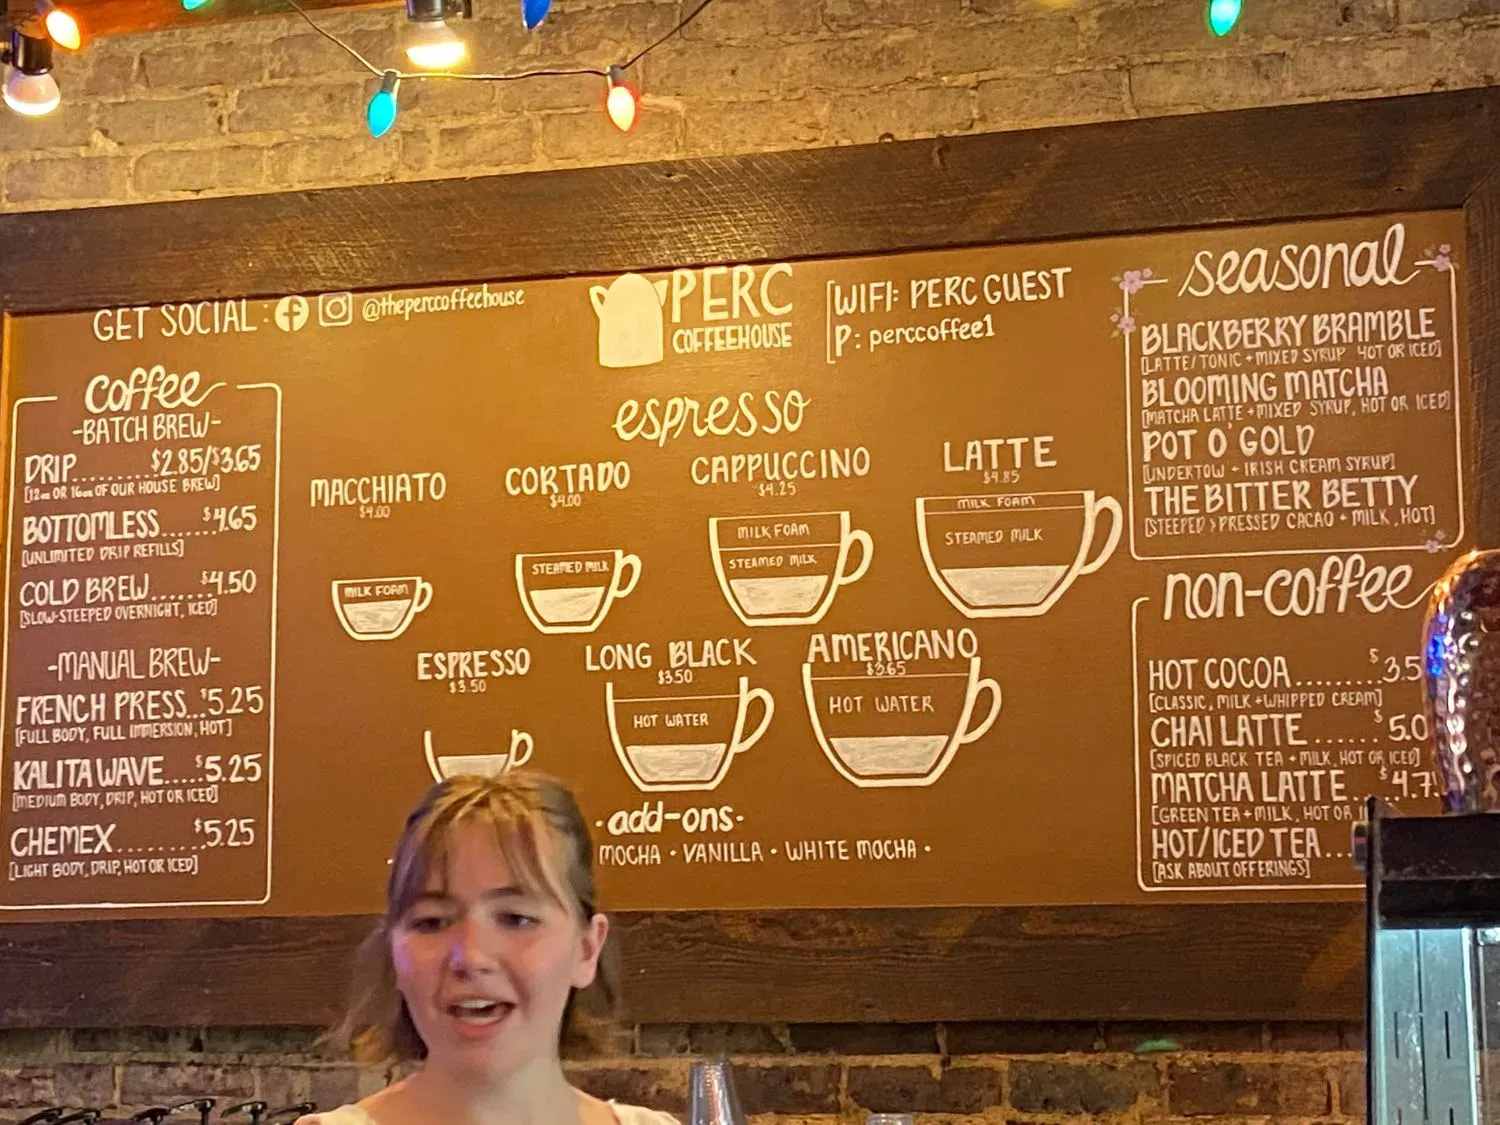 GET SOCIAL: @theperccoffeehouse
PERC
COFFEEHOUSE
WIFI: PERC GUEST
P: perccoffee1
coffee
-BATCH BREW-
DRIP........$2.85/$3.65
[12oz OR 16oz OF OUR HOUSE BREW]
BOTTOMLESS.....$4.65
[UNLIMITED DRIP REFILLS]
COLD BREW.......$4.50
[SLOW-STEEPED OVERNIGHT, ICED]
-MANUAL BREW-
FRENCH PRESS...$5.25
[FULL BODY, FULL IMMERSION, HOT]
KALITA WAVE.....$5.25
[MEDIUM BODY, DRIP, HOT OR ICED]
CHEMEX.........$5.25
[LIGHT BODY, DRIP, HOT OR ICED]
espresso
MACCHIATO
$4.00
MILK FOAM
CORTADO
$4.00
STEAMED MILK
CAPPUCCINO
$4.25
MILK FOAM
STEAMED MILK
LATTE
$4.85
MILK FOAM
STEAMED MILK
ESPRESSO
$3.50
LONG BLACK
$3.50
HOT WATER
AMERICANO
$3.65
HOT WATER
·add-ons·
MOCHA · VANILLA · WHITE MOCHA ·
seasonal
BLACKBERRY BRAMBLE
[LATTE/TONIC + MIXED SYRUP HOT OR ICED]
BLOOMING MATCHA
[MATCHA LATTE + MIXED SYRUP, HOT OR ICED]
POT O' GOLD
[UNDERTOW + IRISH CREAM SYRUP]
THE BITTER BETTY
[STEEPED & PRESSED CACAO + MILK, HOT]
non-coffee
HOT COCOA.........$3.5
[CLASSIC, MILK + WHIPPED CREAM]
CHAI LATTE......$5.0
[SPICED BLACK TEA + MILK, HOT OR ICED]
MATCHA LATTE...$4.7
[GREEN TEA + MILK, HOT OR
HOT/ICED TEA...
[ASK ABOUT OFFERINGS]